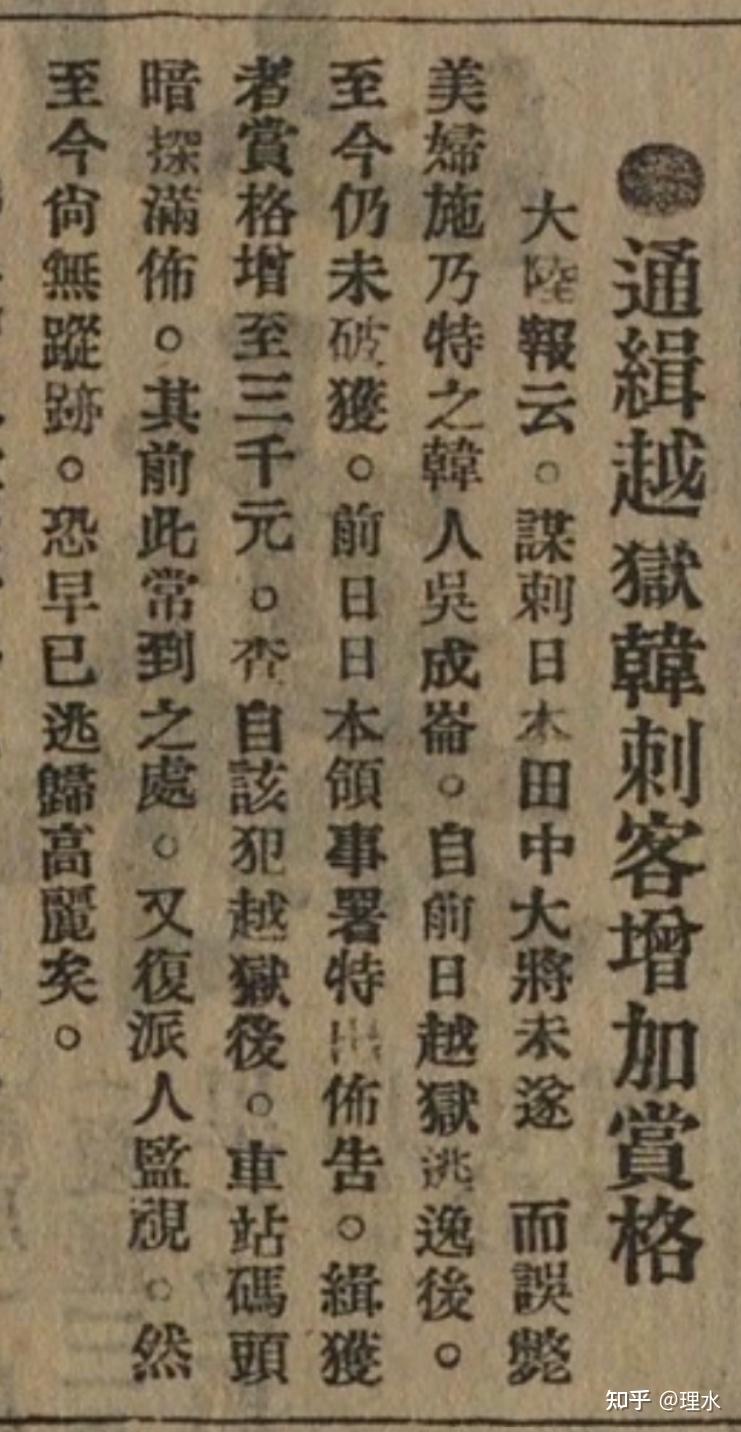 ●通緝越獄韓刺客增加賞格
大陸報云。謀刺日本田中大將未遂 而誤斃
美婦施乃特之韓人吳成崙。自前日越獄逃逸後。
至今仍未破獲。前日日本領事署特出佈告。緝獲
者賞格增至三千元。查自該犯越獄後。車站碼頭
暗探滿佈。其前此常到之處。又復派人監視。然
至今尙無蹤跡。恐早已逃歸高麗矣。
知乎 @理水